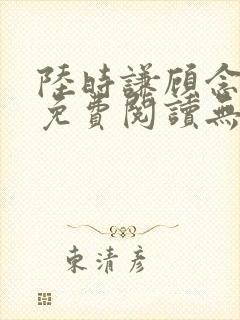 陸時謙顾念
免費閱讀無
東清彦